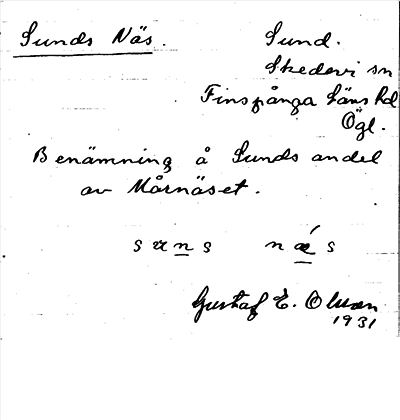 Sunds Näs. Sund.
Skedevi sn
Finspånga läns hd
Ögl.
Benämning å Sunds andel
av Mårnäset.
suns nǽs
Gustaf E. Olsson
1931